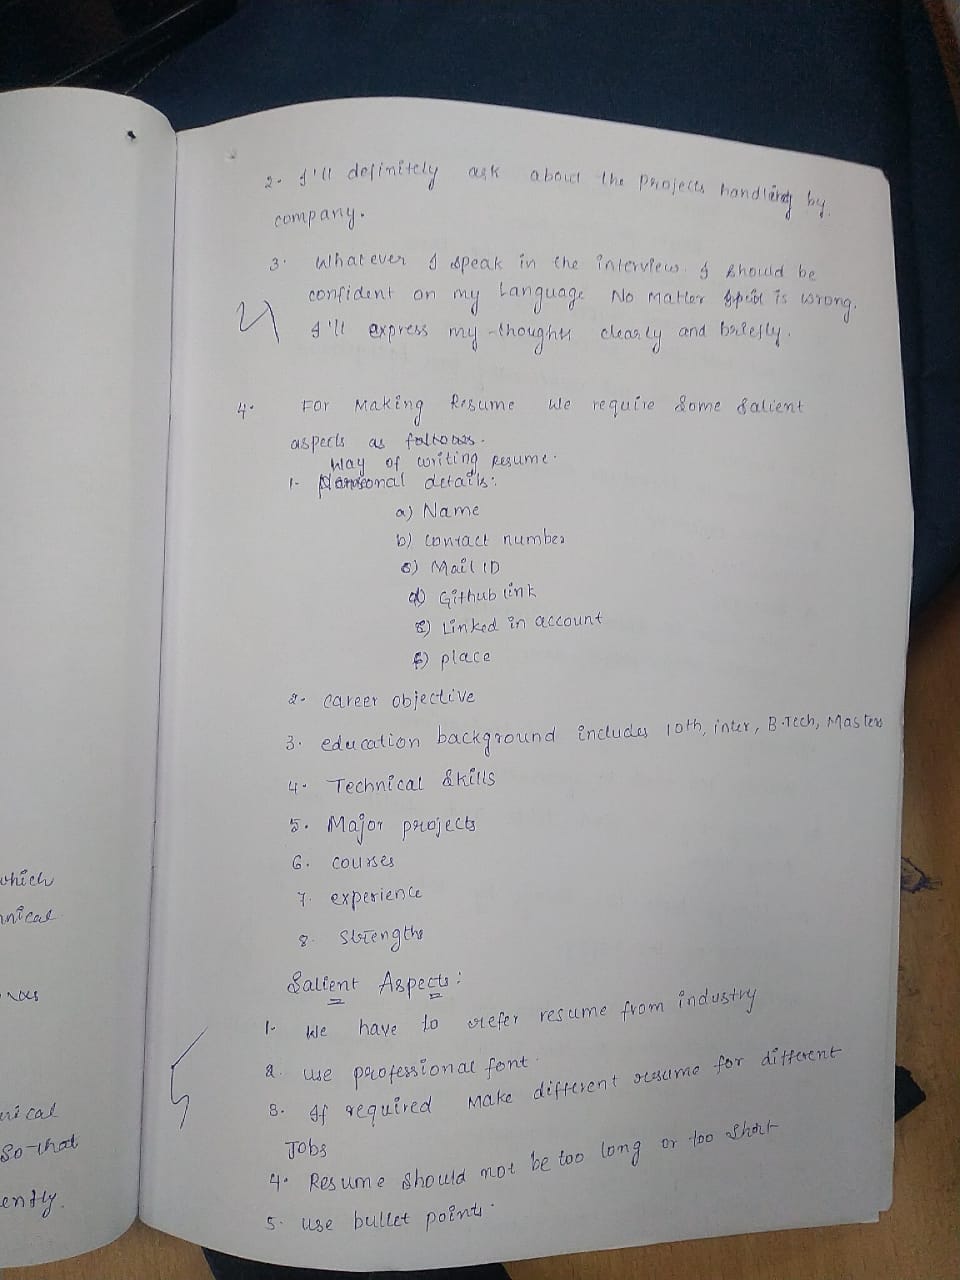 2. I'll definitely ask about the projects handling by
company.
3. Whatever I speak in the interview. I should be
confident on my Language No Matter is wrong.
I'll express my thoughts clearly and briefly.
4. For Making Resume We require Some Salient
aspects as follows.
Way of writing Resume.
1. details:
a) Name
b) contact number
c) Mail ID
d) Github link
e) Linked in account
f) place
2. career objective
3. education background includes 10th, inter, B.Tech, Masters
4. Technical Skills
5. Major projects
6. courses
7. experience
8. Strengths
Salient Aspects:
1. We have to refer resume from industry
2. use professional font.
3. If required Make different resume for different
Jobs
4. Resume Should not be too long or too Short
5. use bullet points.
which
nical
So that
ently.